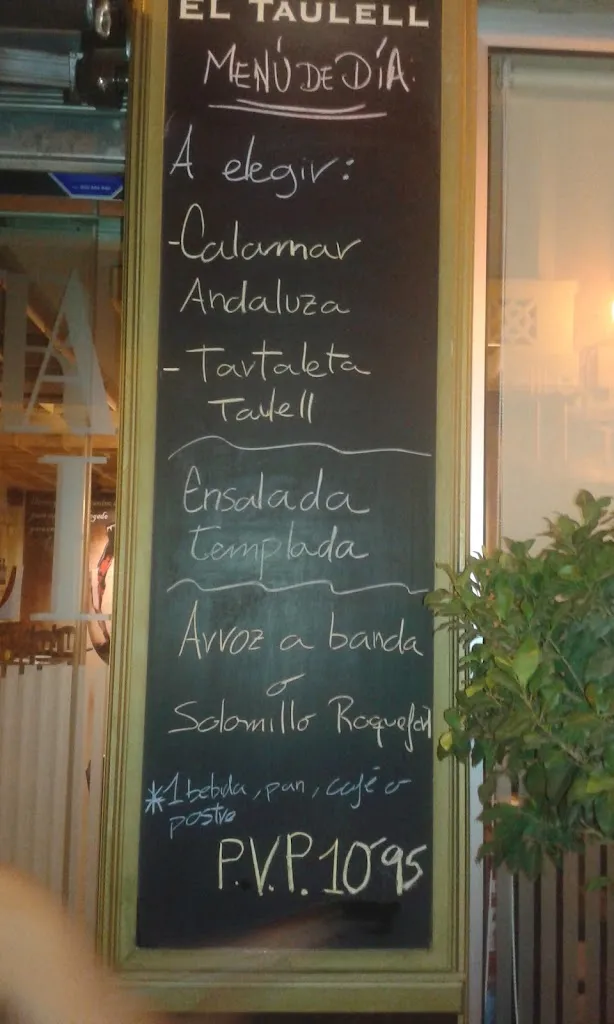 EL TAULELL
MENÚ DE DÍA
A elegir:
-Calamar
Andaluza
- Tartaleta
Taulell
Ensalada
templada
Arroz a banda
o
Solomillo Roquefort
*1 bebida, pan, café o
postre
P.V.P. 10'95